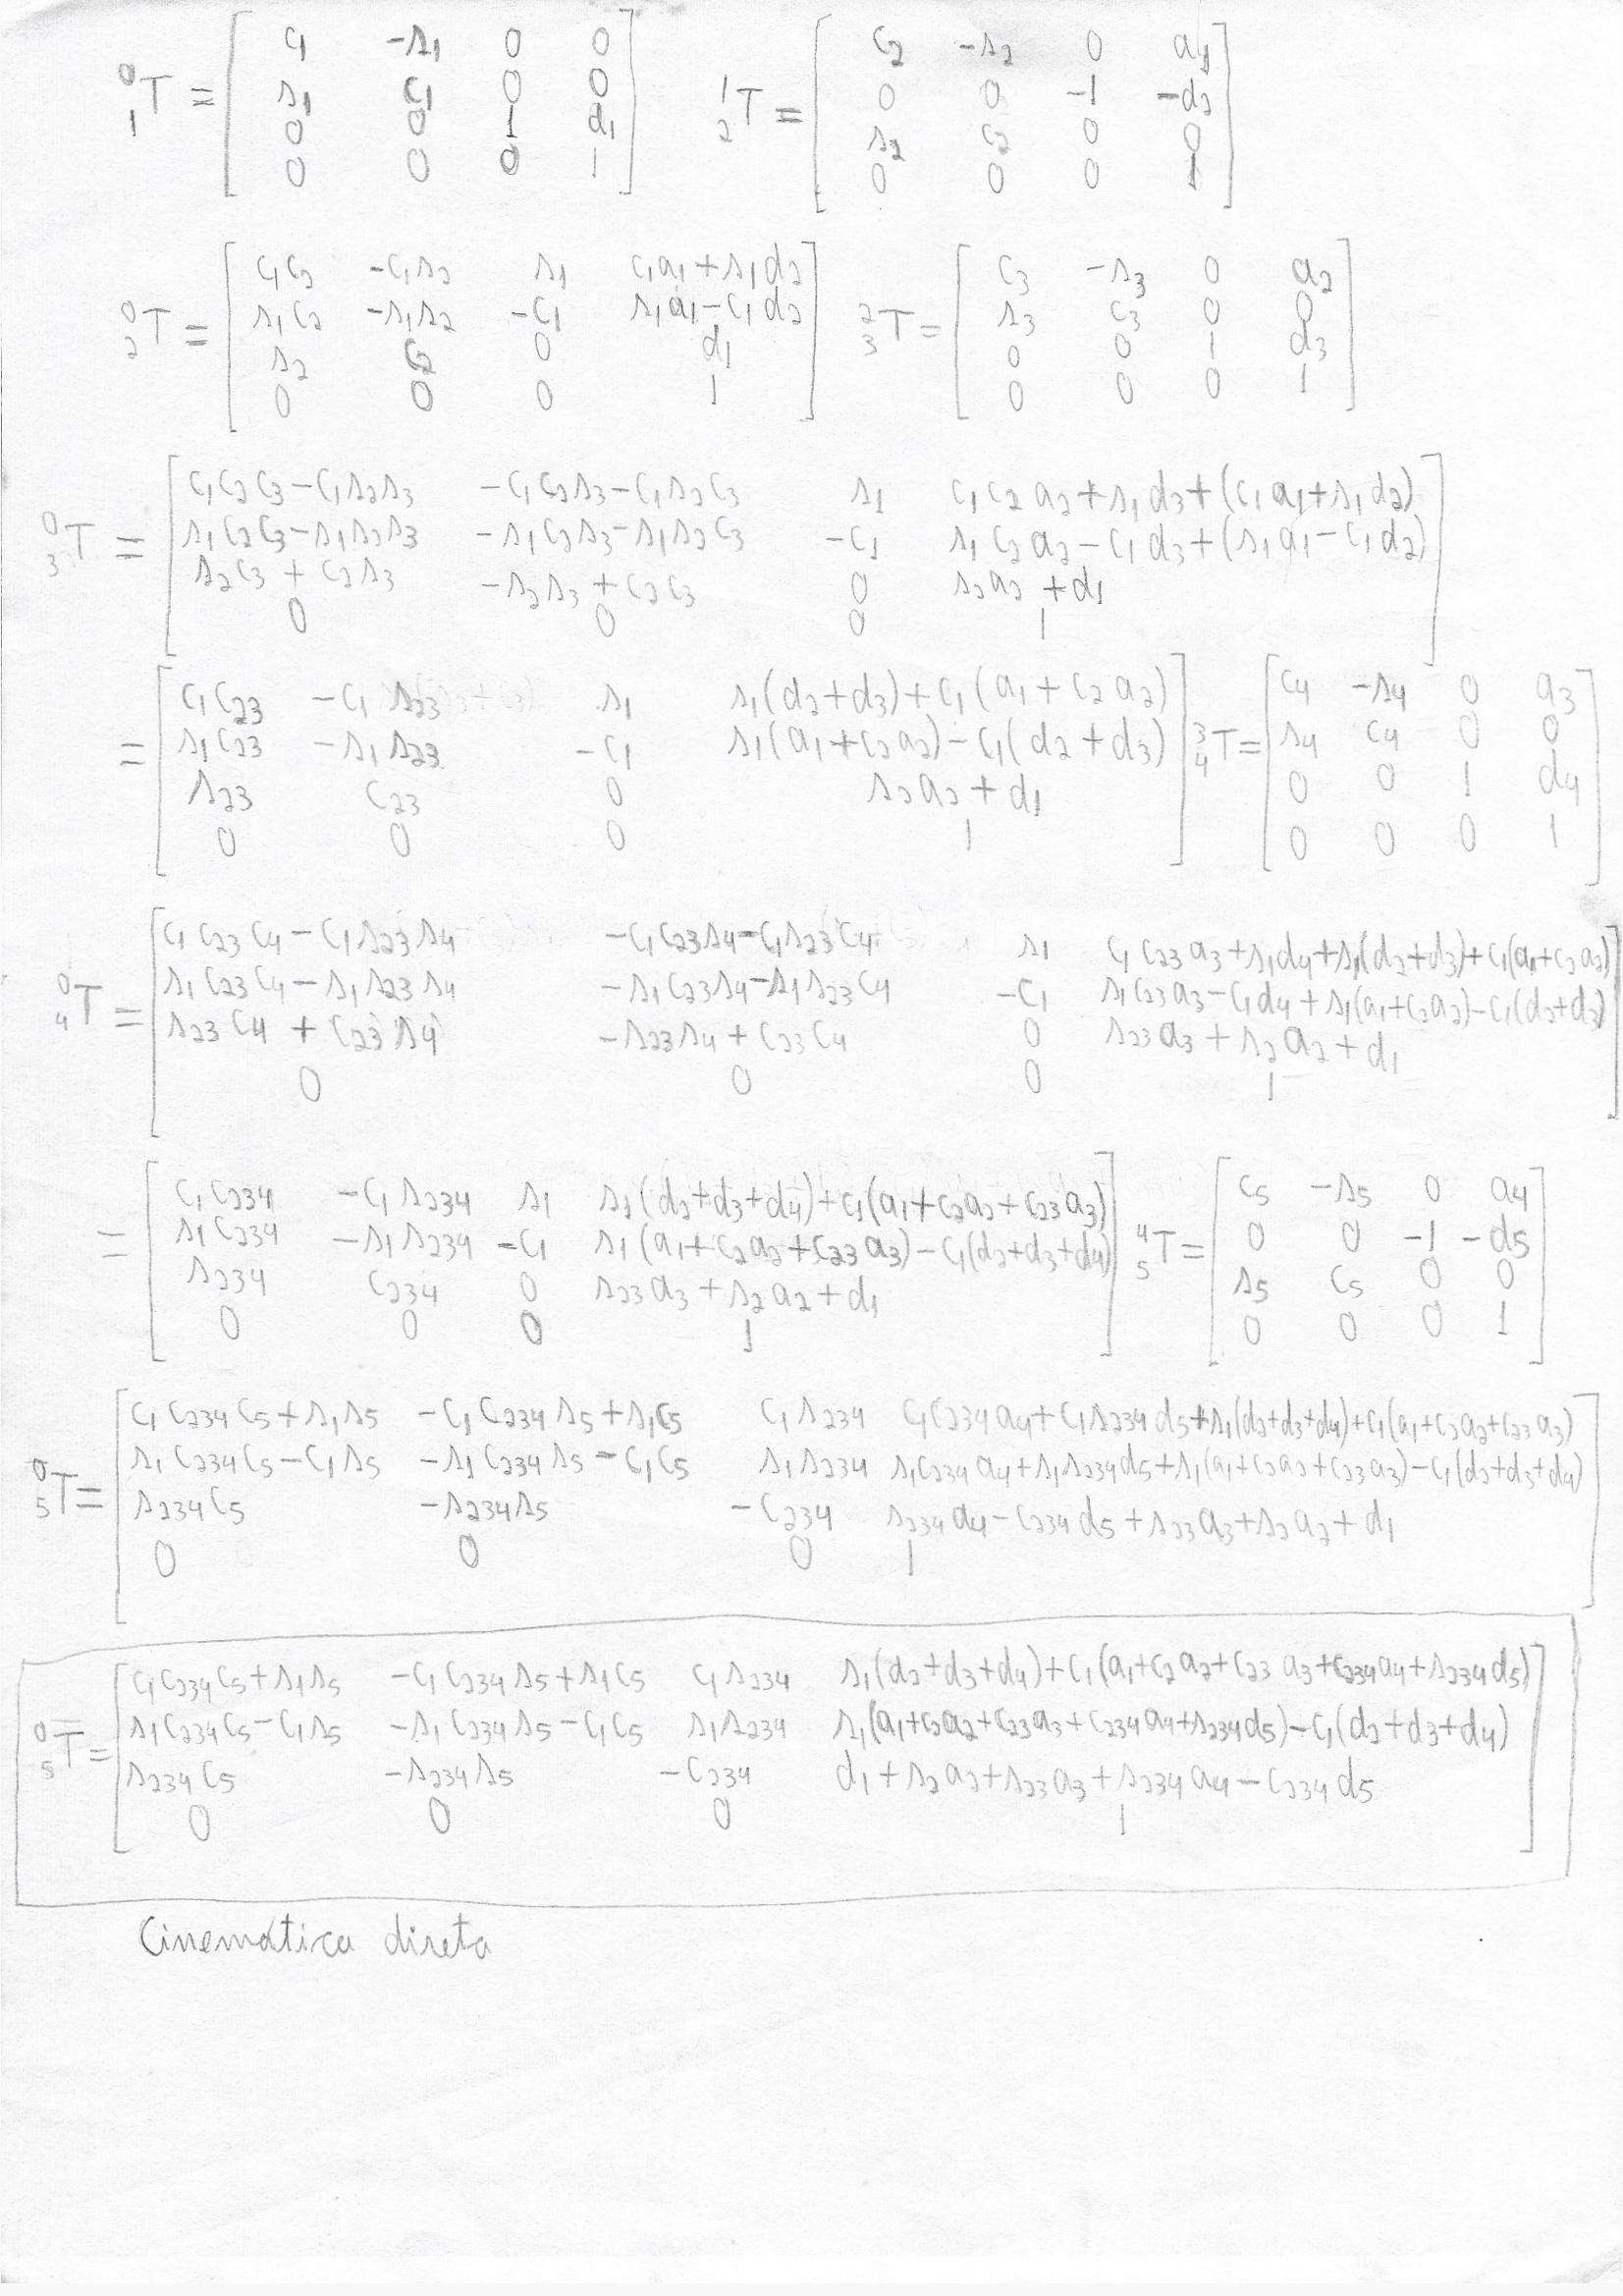 ⁰₁T = [ c₁ -s₁ 0 0
s₁ c₁ 0 0
0 0 1 d₁
0 0 0 1 ]
¹₂T = [ c₂ -s₂ 0 a₁
0 0 -1 -d₂
s₂ c₂ 0 0
0 0 0 1 ]
⁰₂T = [ c₁c₂ -c₁s₂ s₁ c₁a₁+s₁d₂
s₁c₂ -s₁s₂ -c₁ s₁a₁-c₁d₂
s₂ c₂ 0 d₁
0 0 0 1 ]
²₃T = [ c₃ -s₃ 0 a₂
s₃ c₃ 0 0
0 0 1 d₃
0 0 0 1 ]
⁰₃T = [ c₁c₂c₃-c₁s₂s₃ -c₁c₂s₃-c₁s₂c₃ s₁ c₁c₂a₂+s₁d₃+(c₁a₁+s₁d₂)
s₁c₂c₃-s₁s₂s₃ -s₁c₂s₃-s₁s₂c₃ -c₁ s₁c₂a₂-c₁d₃+(s₁a₁-c₁d₂)
s₂c₃+c₂s₃ -s₂s₃+c₂c₃ 0 s₂a₂+d₁
0 0 0 1 ]
= [ c₁c₂₃ -c₁s₂₃ s₁ s₁(d₂+d₃)+c₁(a₁+c₂a₂)
s₁c₂₃ -s₁s₂₃ -c₁ s₁(a₁+c₂a₂)-c₁(d₂+d₃)
s₂₃ c₂₃ 0 s₂a₂+d₁
0 0 0 1 ]
³₄T = [ c₄ -s₄ 0 a₃
s₄ c₄ 0 0
0 0 1 d₄
0 0 0 1 ]
⁰₄T = [ c₁c₂₃c₄-c₁s₂₃s₄ -c₁c₂₃s₄-c₁s₂₃c₄ s₁ c₁c₂₃a₃+s₁d₄+s₁(d₂+d₃)+c₁(a₁+c₂a₂)
s₁c₂₃c₄-s₁s₂₃s₄ -s₁c₂₃s₄-s₁s₂₃c₄ -c₁ s₁c₂₃a₃-c₁d₄+s₁(a₁+c₂a₂)-c₁(d₂+d₃)
s₂₃c₄+c₂₃s₄ -s₂₃s₄+c₂₃c₄ 0 s₂₃a₃+s₂a₂+d₁
0 0 0 1 ]
= [ c₁c₂₃₄ -c₁s₂₃₄ s₁ s₁(d₂+d₃+d₄)+c₁(a₁+c₂a₂+c₂₃a₃)
s₁c₂₃₄ -s₁s₂₃₄ -c₁ s₁(a₁+c₂a₂+c₂₃a₃)-c₁(d₂+d₃+d₄)
s₂₃₄ c₂₃₄ 0 s₂₃a₃+s₂a₂+d₁
0 0 0 1 ]
⁴₅T = [ c₅ -s₅ 0 a₄
0 0 -1 -d₅
s₅ c₅ 0 0
0 0 0 1 ]
⁰₅T = [ c₁c₂₃₄c₅+s₁s₅ -c₁c₂₃₄s₅+s₁c₅ c₁s₂₃₄ c₁c₂₃₄a₄+c₁s₂₃₄d₅+s₁(d₂+d₃+d₄)+c₁(a₁+c₂a₂+c₂₃a₃)
s₁c₂₃₄c₅-c₁s₅ -s₁c₂₃₄s₅-c₁c₅ s₁s₂₃₄ s₁c₂₃₄a₄+s₁s₂₃₄d₅+s₁(a₁+c₂a₂+c₂₃a₃)-c₁(d₂+d₃+d₄)
s₂₃₄c₅ -s₂₃₄s₅ -c₂₃₄ s₂₃₄a₄-c₂₃₄d₅+s₂₃a₃+s₂a₂+d₁
0 0 0 1 ]
⁰₅T = [ c₁c₂₃₄c₅+s₁s₅ -c₁c₂₃₄s₅+s₁c₅ c₁s₂₃₄ s₁(d₂+d₃+d₄)+c₁(a₁+c₂a₂+c₂₃a₃+c₂₃₄a₄+s₂₃₄d₅)
s₁c₂₃₄c₅-c₁s₅ -s₁c₂₃₄s₅-c₁c₅ s₁s₂₃₄ s₁(a₁+c₂a₂+c₂₃a₃+c₂₃₄a₄+s₂₃₄d₅)-c₁(d₂+d₃+d₄)
s₂₃₄c₅ -s₂₃₄s₅ -c₂₃₄ d₁+s₂a₂+s₂₃a₃+s₂₃₄a₄-c₂₃₄d₅
0 0 0 1 ]
Cinemática direta